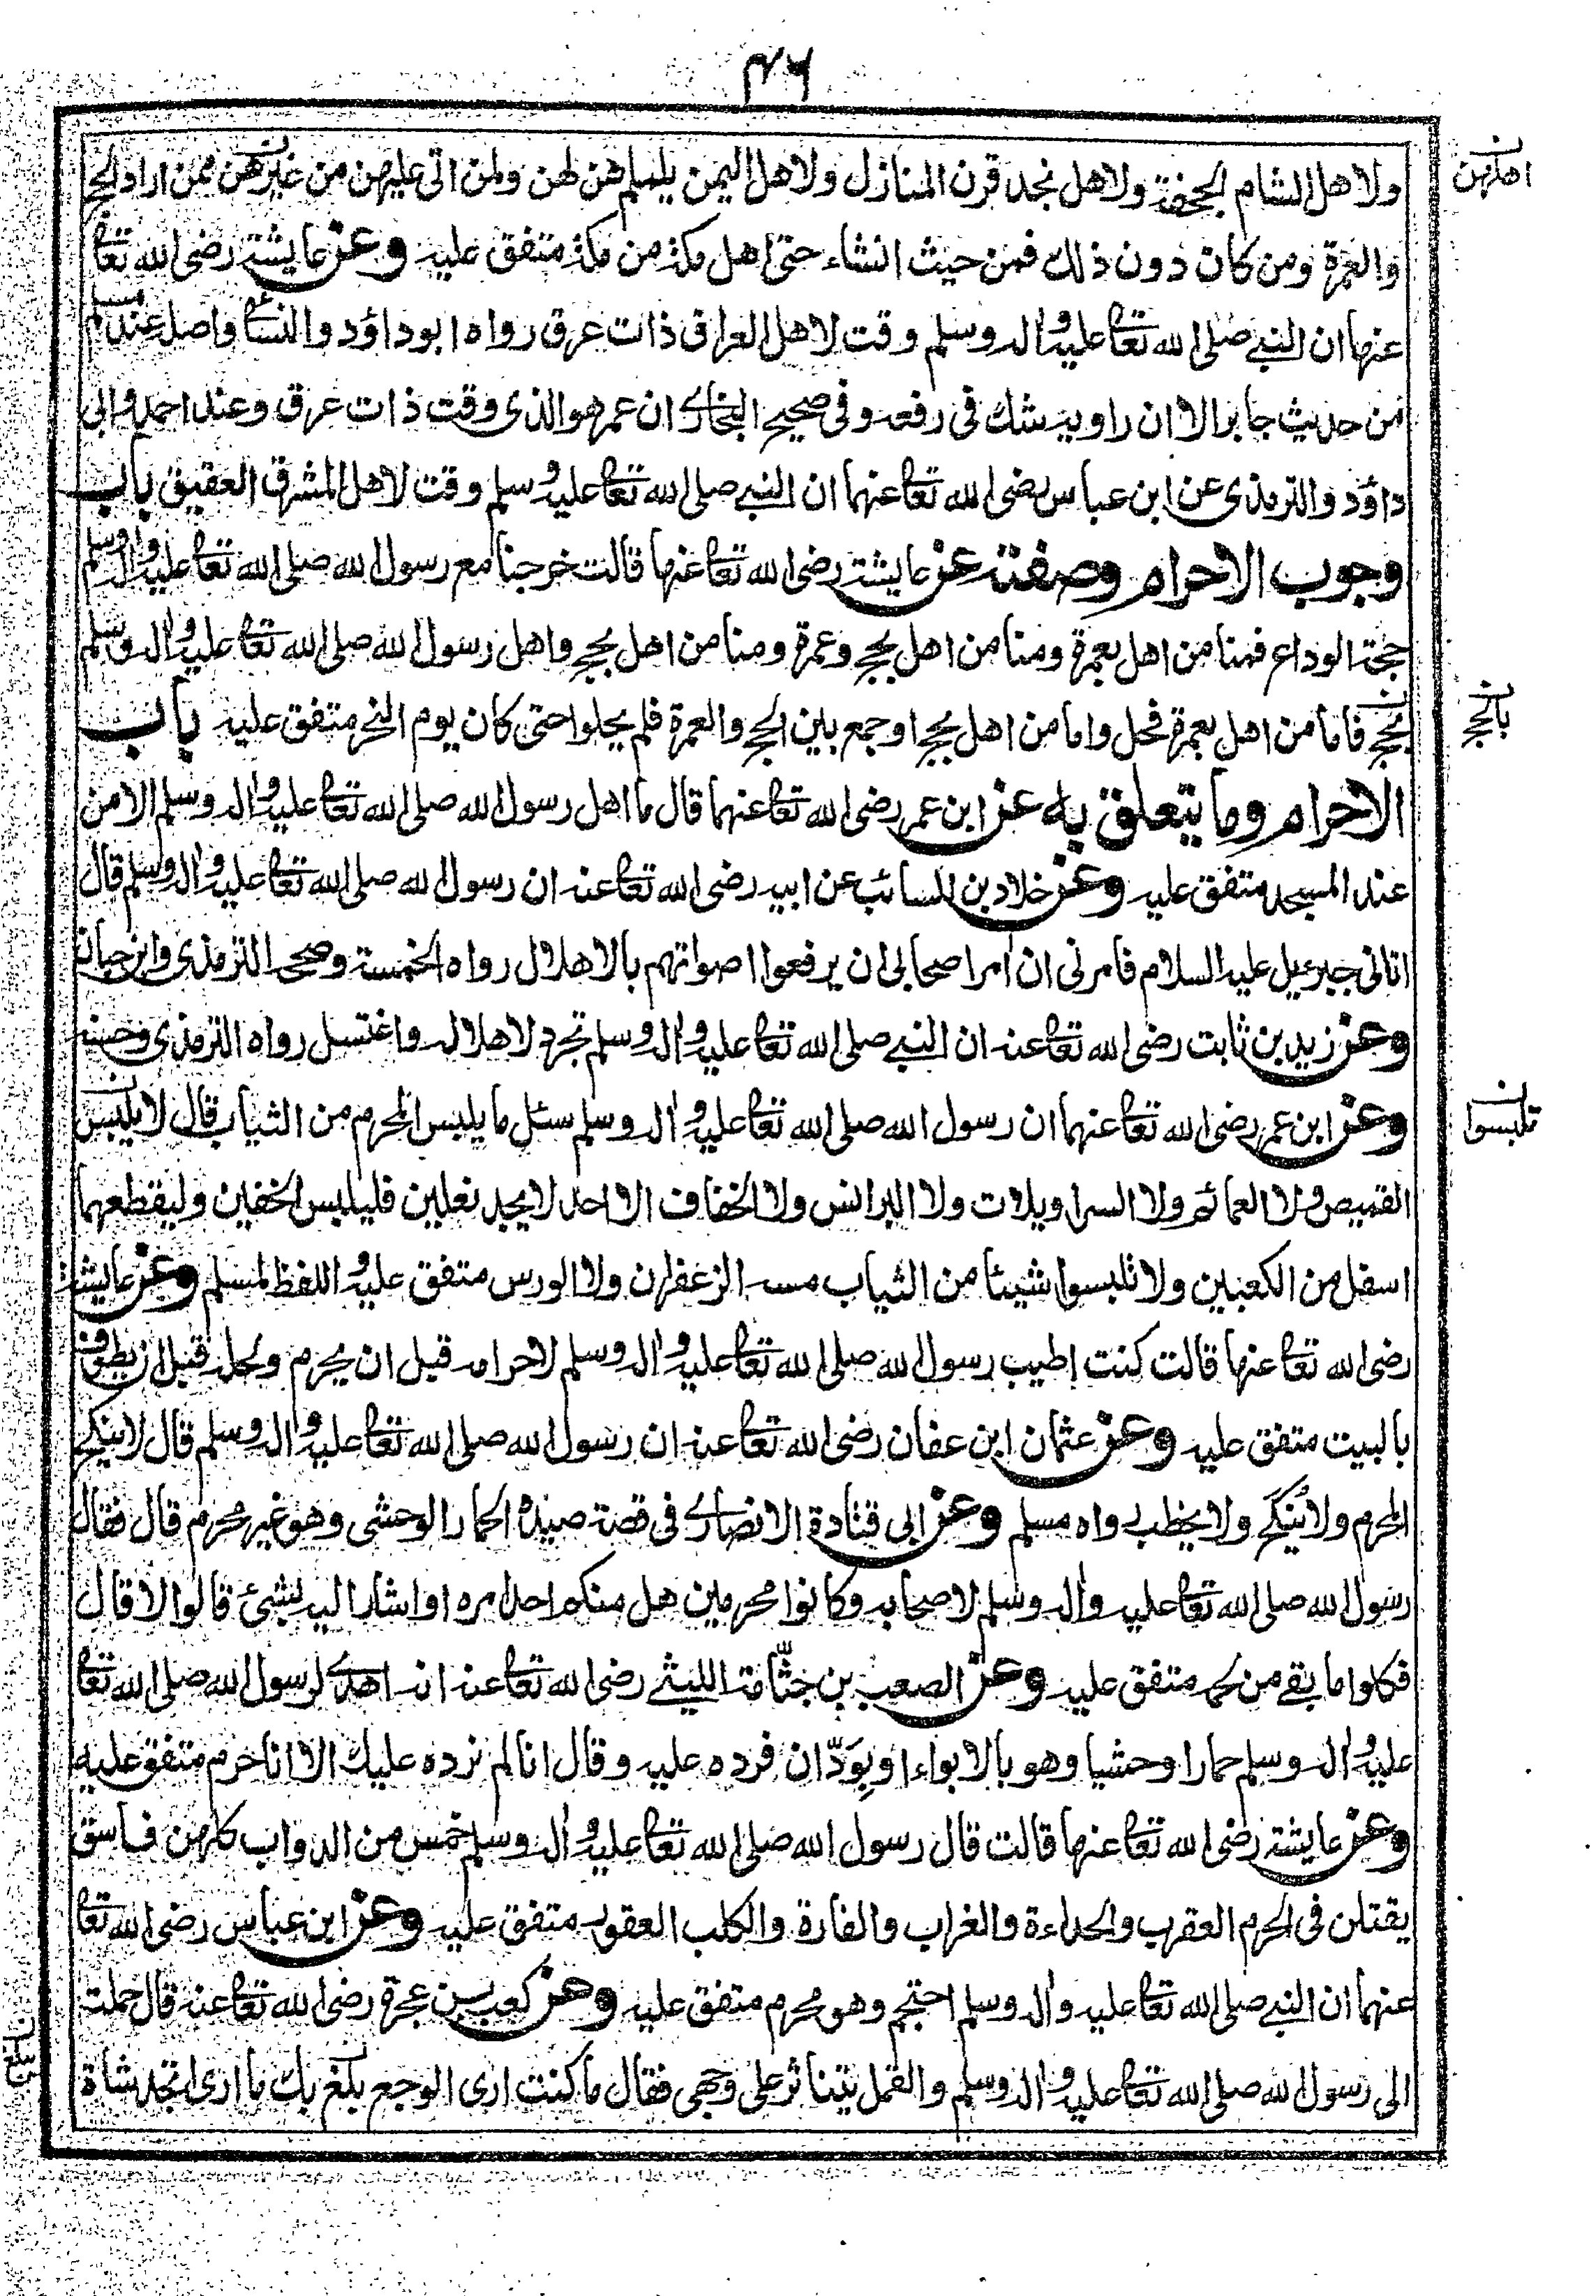 ٧٦
ولاهل الشام الجحفة ولاهل نجد قرن المنازل ولاهل اليمن يلملم هن لهن ولمن اتى عليهن من غيرهن ممن اراد الحج
اهلهن
والعمرة ومن كان دون ذلك فمن حيث انشاء حتى اهل مكة من مكة متفق عليه وعن عايشة رضى الله تعا
عنها ان النبي صلى الله تعا عليه واله وسلم وقت لاهل العراق ذات عرق رواه ابو داؤد والنسائي واصله عند مسلم
من حديث جابر الا ان راويه شك فى رفعه وفى صحيح البخارى ان عمر هو الذى وقت ذات عرق وعند احمد وابى
داؤد والترمذى عن ابن عباس رضى الله تعا عنهما ان النبي صلى الله تعا عليه وسلم وقت لاهل المشرق العقيق باب
وجوب الاحرام وصفته عن عايشة رضى الله تعا عنها قالت خرجنا مع رسول الله صلى الله تعا عليه واله وسلم
حجة الوداع فمنا من اهل بعمرة ومنا من اهل بحج وعمرة ومنا من اهل بحج واهل رسول الله صلى الله تعا عليه واله وسلم
بحج فاما من اهل بعمرة فحل واما من اهل بحج او جمع بين الحج والعمرة فلم يحلوا حتى كان يوم النحر متفق عليه باب
بالحج
الاحرام وما يتعلق به عن ابن عمر رضى الله تعا عنهما قال ما اهل رسول الله صلى الله تعا عليه واله وسلم الا من
عند المسجد متفق عليه وعن خلاد بن السائب عن ابيه رضى الله تعا عنه ان رسول الله صلى الله تعا عليه واله وسلم قال
اتانى جبرئيل عليه السلام فامرنى ان امر اصحابى ان يرفعوا اصواتهم بالاهلال رواه الخمسة وصححه الترمذى وابن حبان
وعن زيد بن ثابت رضى الله تعا عنه ان النبي صلى الله تعا عليه واله وسلم تجرد لاهلاله واغتسل رواه الترمذى وحسنه
وعن ابن عمر رضى الله تعا عنهما ان رسول الله صلى الله تعا عليه واله وسلم سئل ما يلبس المحرم من الثياب قال لا يلبس
تلبسوا
القميص ولا العمائم ولا السراويلات ولا البرانس ولا الخفاف الا احد لا يجد نعلين فليلبس الخفين وليقطعهما
اسفل من الكعبين ولا تلبسوا شيئا من الثياب مسه الزعفران ولا الورس متفق عليه واللفظ لمسلم وعن عايشة
رضى الله تعا عنها قالت كنت اطيب رسول الله صلى الله تعا عليه واله وسلم لاحرامه قبل ان يحرم ولحله قبل ان يطوف
بالبيت متفق عليه وعن عثمان ابن عفان رضى الله تعا عنه ان رسول الله صلى الله تعا عليه واله وسلم قال لا ينكح
المحرم ولا يُنكَح ولا يخطب رواه مسلم وعن ابى قتادة الانصارى فى قصة صيده الحمار الوحشى وهو غير محرم قال فقال
رسول الله صلى الله تعا عليه واله وسلم لاصحابه وكانوا محرمين هل منكم احد امره او اشار اليه بشئ قالوا لا قال
فكلوا ما بقے من لحمه متفق عليه وعن الصعب بن جثّامة الليثے رضى الله تعا عنه انه اهدى لرسول الله صلى الله تعا
عليه واله وسلم حمارا وحشيا وهو بالابواء او بِوَدّان فرده عليه وقال انا لم نرده عليك الا انا حرم متفق عليه
وعن عايشة رضى الله تعا عنها قالت قال رسول الله صلى الله تعا عليه واله وسلم خمس من الدواب كلهن فاسق
يقتلن فى الحرم العقرب والحداءة والغراب والفارة والكلب العقور متفق عليه وعن ابن عباس رضى الله تعا
عنهما ان النبي صلى الله تعا عليه واله وسلم احتجم وهو محرم متفق عليه وعن كعب بن عجرة رضى الله تعا عنه قال حملت
الى رسول الله صلى الله تعا عليه واله وسلم والقمل يتناثر على وجهى فقال ما كنت ارى الوجع بلغ بك ما ارى اتجد شاة
يبلغ